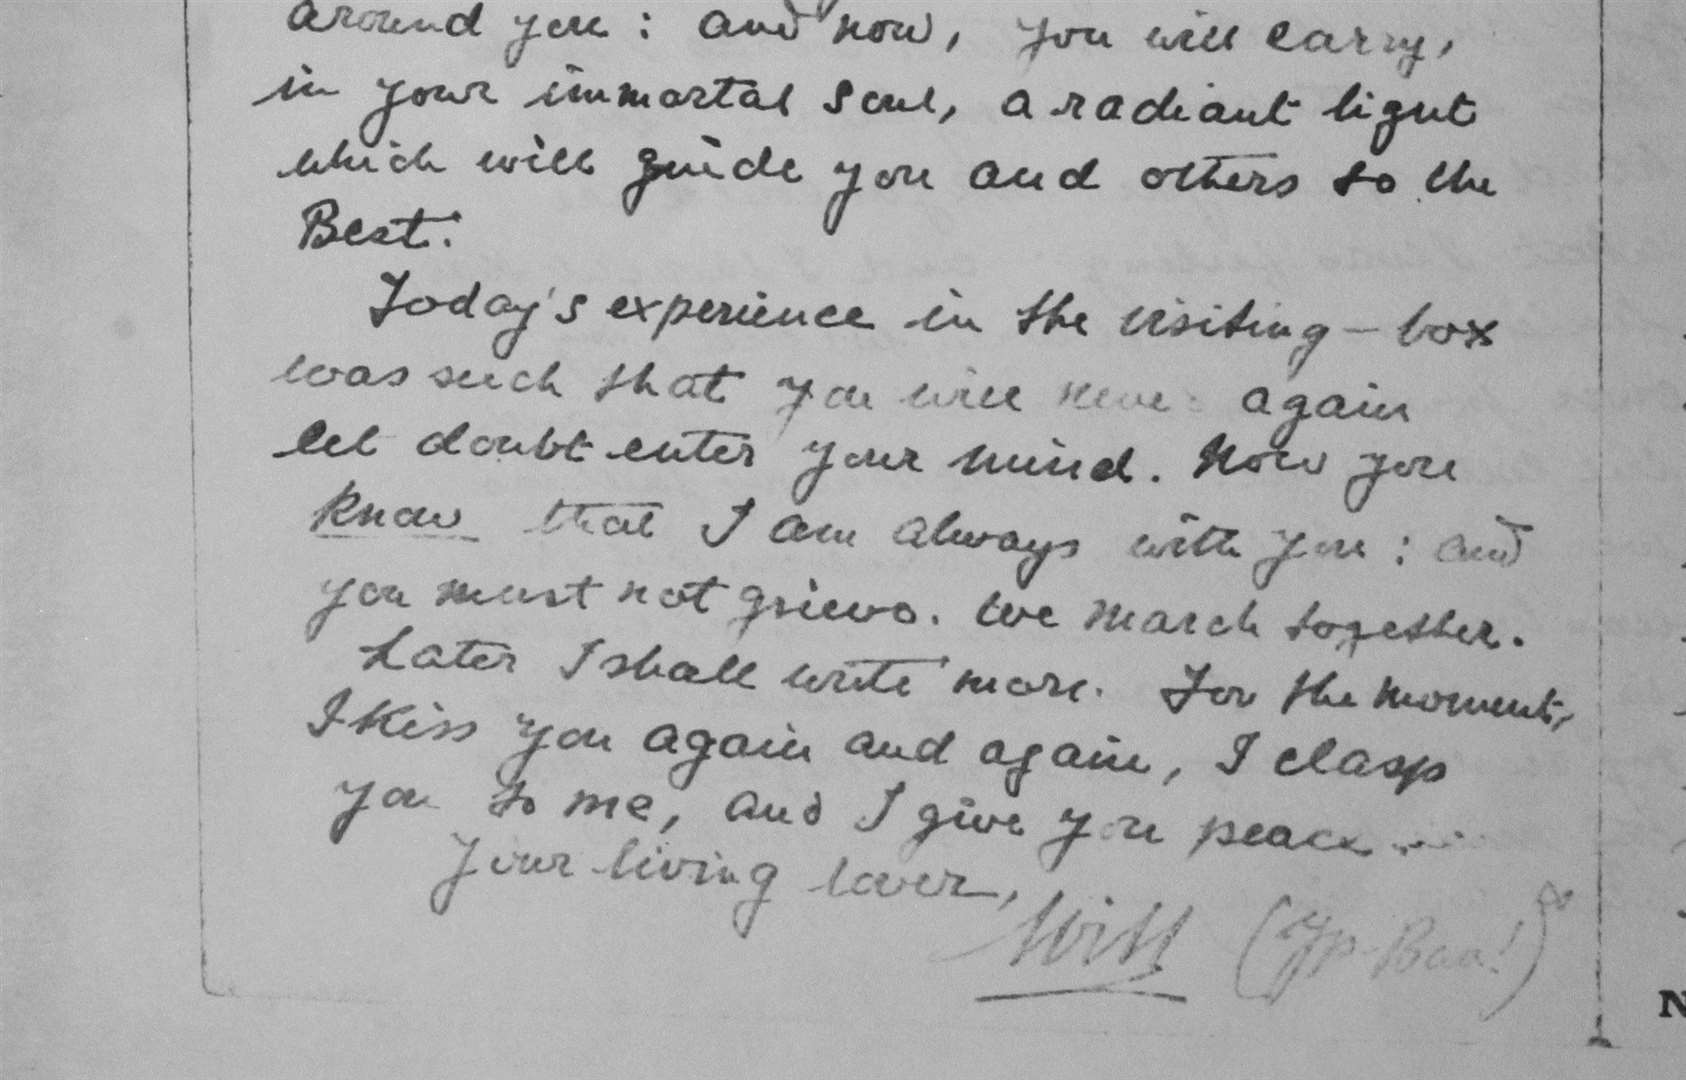 around you : and now, you will carry,
in your immortal soul, a radiant light
which will guide you and others to the
Best.
Today's experience in the visiting-box
was such that you will never again
let doubt enter your mind. Now you
know that I am always with you : and
you must not grieve. We march together.
Later I shall write more. For the moment,
I kiss you again and again, I clasp
you to me, and I give you peace ...
Your living lover,
Will
N